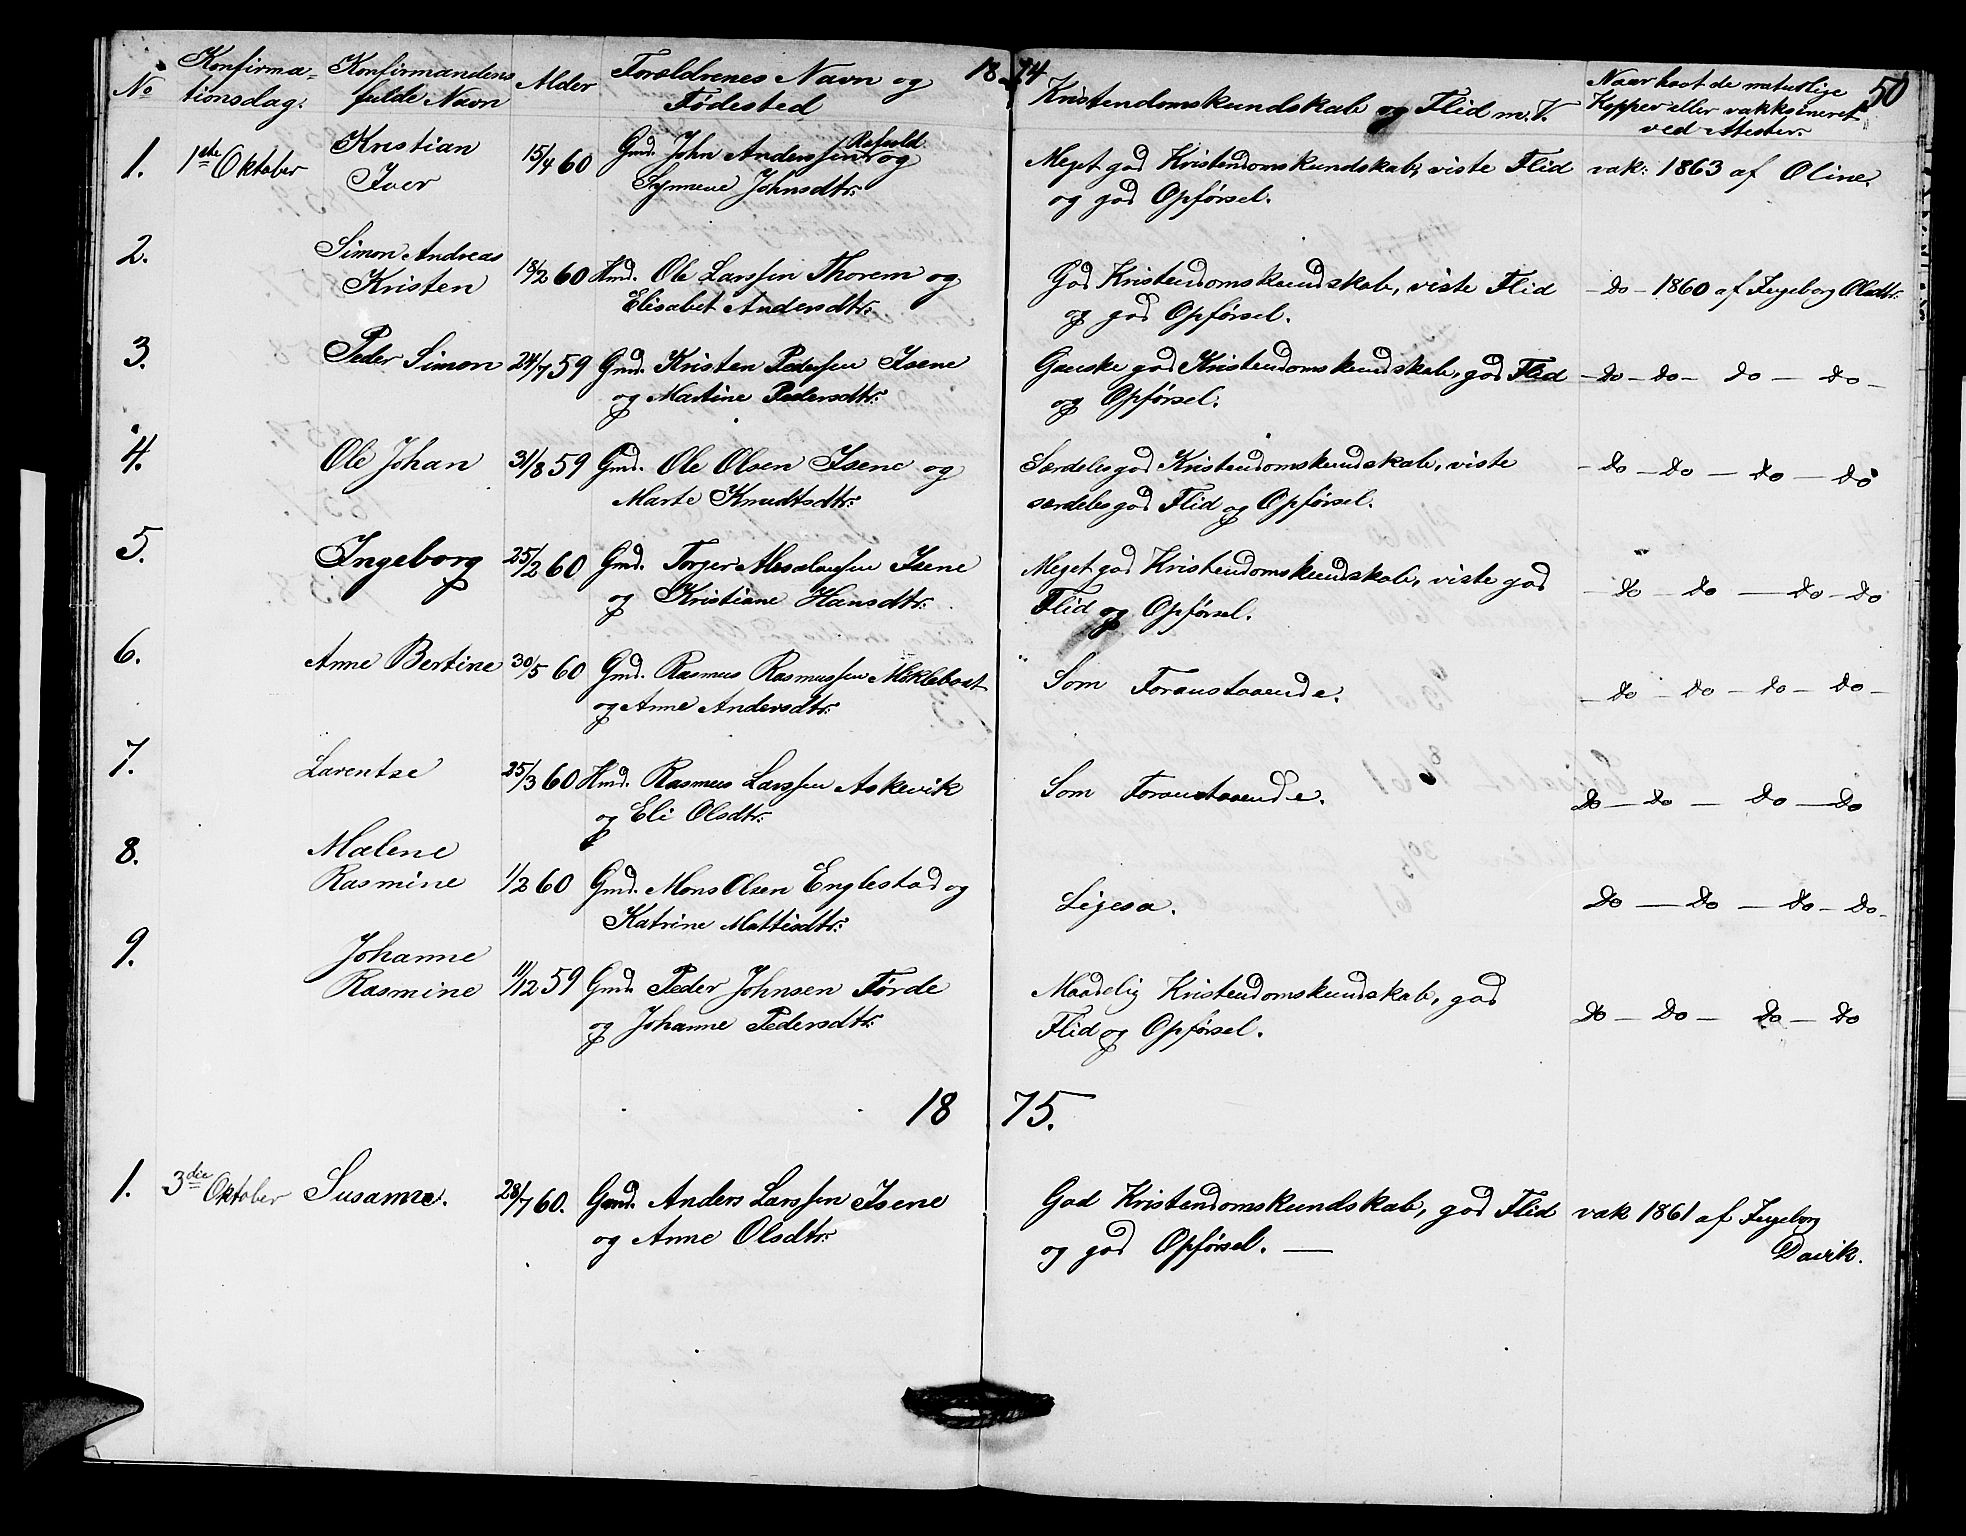 18 74
50
No Konfirma- Konfirmandens Alder Forældrenes Navn og Kristendomskundskab og Flid m.V. Naar havt de naturlige
tionsdag: fulde Navn Fødested Kopper eller vakksineret
ved Attester.
1. 1ste Oktober Kristian 15/4 60 Gmd. John Anderssen og Meget god Kristendomskundskab, viste Flid vak: 1863 af Oline.
Iver Synneve Johnsdtr: og god Opførsel.
2. Simon Andreas
Kristen 18/2 60 Hmd. Ole Larssen Thorem og God Kristendomskundskab, viste Flid - do - 1860 af Ingeborg Olsdtr:
Elisabet Andersdtr: og god Opførsel.
3. Peder Simon 24/7 59 Gmd. Kristen Pederssen Isene Ganske god Kristendomskundskab, god Flid - do - do - do - do -
og Martine Pedersdtr: og Opførsel.
4. Ole Johan 31/8 59 Gmd. Ole Olsen Isene og Særdeles god Kristendomskundskab, viste - do - do - do - do
Marte Knudtsdtr: særdeles god Flid og Opførsel.
5. Ingeborg 25/2 60 Gmd. Torger Absalonssen Isene Meget god Kristendomskundskab, viste god - do - do - do - do
og Kristiane Hansdtr: Flid og Opførsel.
6. Anne Bertine 30/5 60 Gmd. Rasmus Rasmussen Mikleboat Som Foranstaaende. - do - do - do - do -
og Anne Andersdtr:
7. Larentse 25/3 60 Hmd. Rasmus Larssen Askevik Som Foranstaaende. do - do - do - do
og Eli Olsdtr:
8. Malene
Rasmine 1/2 60 Gmd. Mons Olsen Englestad og Ligesa. do - do - do - do -
Katrine Mattisdtr:
9. Johanne
Rasmine 11/12 59 Gmd. Peder Johnsen Förde Maadelig Kristendomskundskab, god do - do - do - do
og Johanne Pedersdtr: Flid og Opførsel.
18 75.
1. 3die Oktober Susanne. 28/7 60. Gmd. Anders Larssen Isene God Kristendomskundskab, god Flid vak 1861 af Ingeborg
og Anne Olsdtr: og god Opførsel. — Davik.